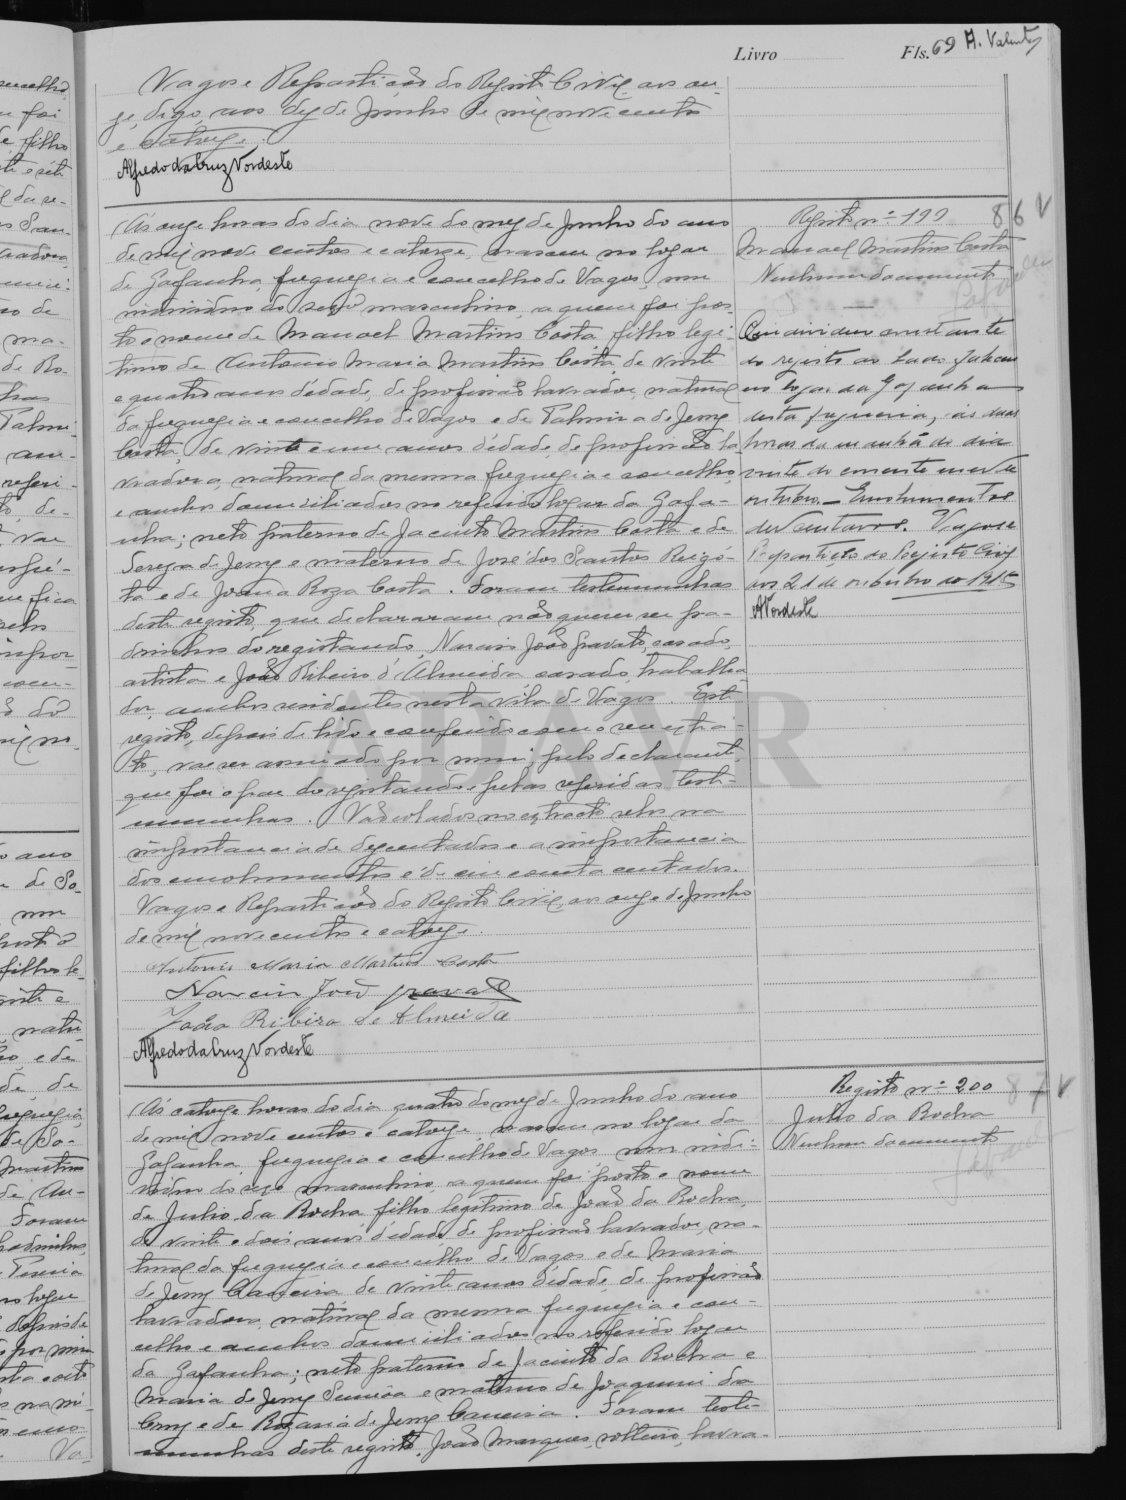 Livro Fls. 69 A. Valente
Vagos e Repartição do Registo Civil aos on-
ze, digo, aos dez de Junho de mil nove centos
e catorze.
Alfredo da Cruz Nordeste
Ás onze horas do dia nove do mez de Junho do ano
de mil nove centos e catorze, nasceu no logar
da Gafanha, freguezia e concelho de Vagos, um
individuo do sexo masculino, a quem foi pos-
to o nome de Manoel Martins Costa, filho legi-
timo de Antonio Maria Martins Costa, de vinte
e quatro anos d'edade, de profissão lavrador, natural
da freguezia e concelho de Vagos e de Palmira de Jesus
Costa, de vinte e um anos d'edade, de profissão la-
vradora, natural da mesma freguezia e concelho,
e ambos domiciliados no referido logar da Gafa-
nha; neto paterno de Jacinto Martins Costa e de
Tereza de Jesus e materno de José dos Santos Rigó-
ta e de Joana Roza Costa. Foram testemunhas
deste registo, que declararam não querem ser pa-
drinhos do registando, Narciso João Gravato, casado,
artista e João Ribeiro d'Almeida casado, trabalha-
dor, ambos residentes nesta vila de Vagos. Este
registo, depois de lido e conferido com o seu extra-
to, vae ser assinado por mim, pelo declarante,
que foi o pae do registando e pelas referidas teste-
munhas. Vão colados no extracto selos na
importancia de dez centavos e a importancia
dos emolumentos é de cincoenta centavos.
Vagos e Repartição do Registo Civil, aos onze de Junho
de mil nove centos e catorze.
Antonio Maria Martins Costa
Narciso João Gravato
João Ribeiro de Almeida
Alfredo da Cruz Nordeste
Registo nº 199 86 V
Manoel Martins Costa
Nenhum documento
O individuo constante
do registo ao lado faleceu
no logar da Gafanha
desta freguezia, ás duas
horas da manhã do dia
vinte do corrente mez de
outubro. — Emolumentos
dez centavos. Vagos e
Repartição do Registo Civil
aos 21 de outubro de 1915
ANordeste
ADAVR
Ás catorze horas do dia quatro do mez de Junho do ano
de mil nove centos e catorze, nasceu no logar da
Gafanha, freguezia e concelho de Vagos, um indi-
viduo do sexo masculino, a quem foi posto o nome
de Julio da Rocha filho legitimo de João da Rocha,
de vinte e dois anos d'edade, de profissão lavrador, na-
tural da freguezia e concelho de Vagos e de Maria
de Jesus Caneira de vinte anos d'edade, de profissão
lavradora, natural da mesma freguezia e con-
celho e ambos domiciliados no referido logar
da Gafanha; neto paterno de Jacinto da Rocha e
Maria de Jesus e materno de Joaquim da
Cruz e de Rozaria de Jesus Caneira. Foram teste-
munhas deste registo, João Marques, solteiro, lavra-
Registo nº 200 87 V
Julio da Rocha
Nenhum documento